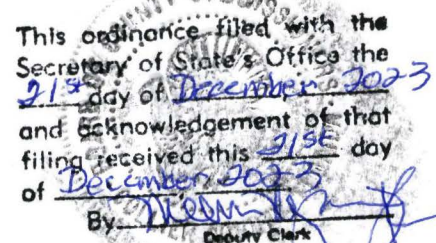 This ordinance filed with the
Secretary of State's Office the
21st day of December 2023
and acknowledgement of that
filing received this 21st day
of December 2023
By
Deputy Clerk